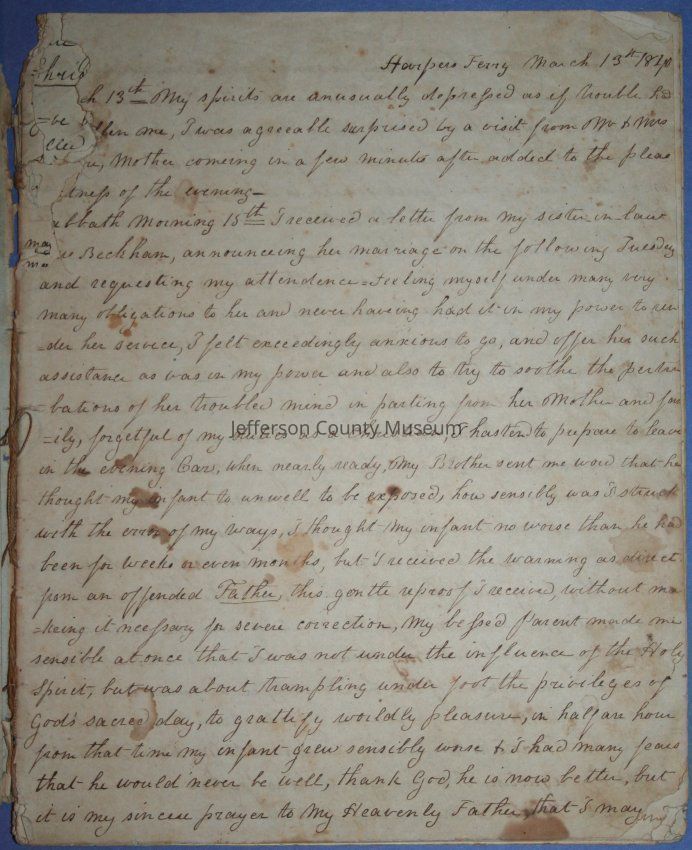 Harpers Ferry March 13th 1840
Chris
ch 13th My spirits are unusually depressed as if trouble had
=be
llen me, I was agreeable surprised by a visit from Mr & Mrs
re, Mother comeing in a few minutes after added to the pleas
tness of the evening—
abbath Morning 15th I received a letter from my sister in law
may
Beckham, announceing her marriage on the following Tuesday
and requesting my attendence = feeling myself under many very
many obligations to her and never having had it in my power to ren
=der her service, I felt exceedingly anxious to go, and offer her such
assistance as was in my power and also to try to soothe the pertur
=bations of her troubled mind in parting from her Mother and fam
=ily, forgetful of my as a I hastend to prepare to leave
Jefferson County Museum
in the evening Cars, when nearly ready, My Brother sent me word that he
thought my infant to unwell to be exposed, how sensibly was I struck
with the error of my ways, I thought my infant no worse than he had
been for weeks or even months, but I received the warning as direct
from an offended Father, this gentle reproof I received, without ma
=keing it necssary for severe correction, My blessed Parent made me
sensible at once that I was not under the influence of the Holy
Spirit, but was about trampling under foot the privileges of
God's sacred day, to gratify worldly pleasure, in half an hour
from that time my infant grew sensibly worse & I had many fears
that he would never be well, thank God, he is now better, but
it is my sincere prayer to My Heavenly Father, that I may